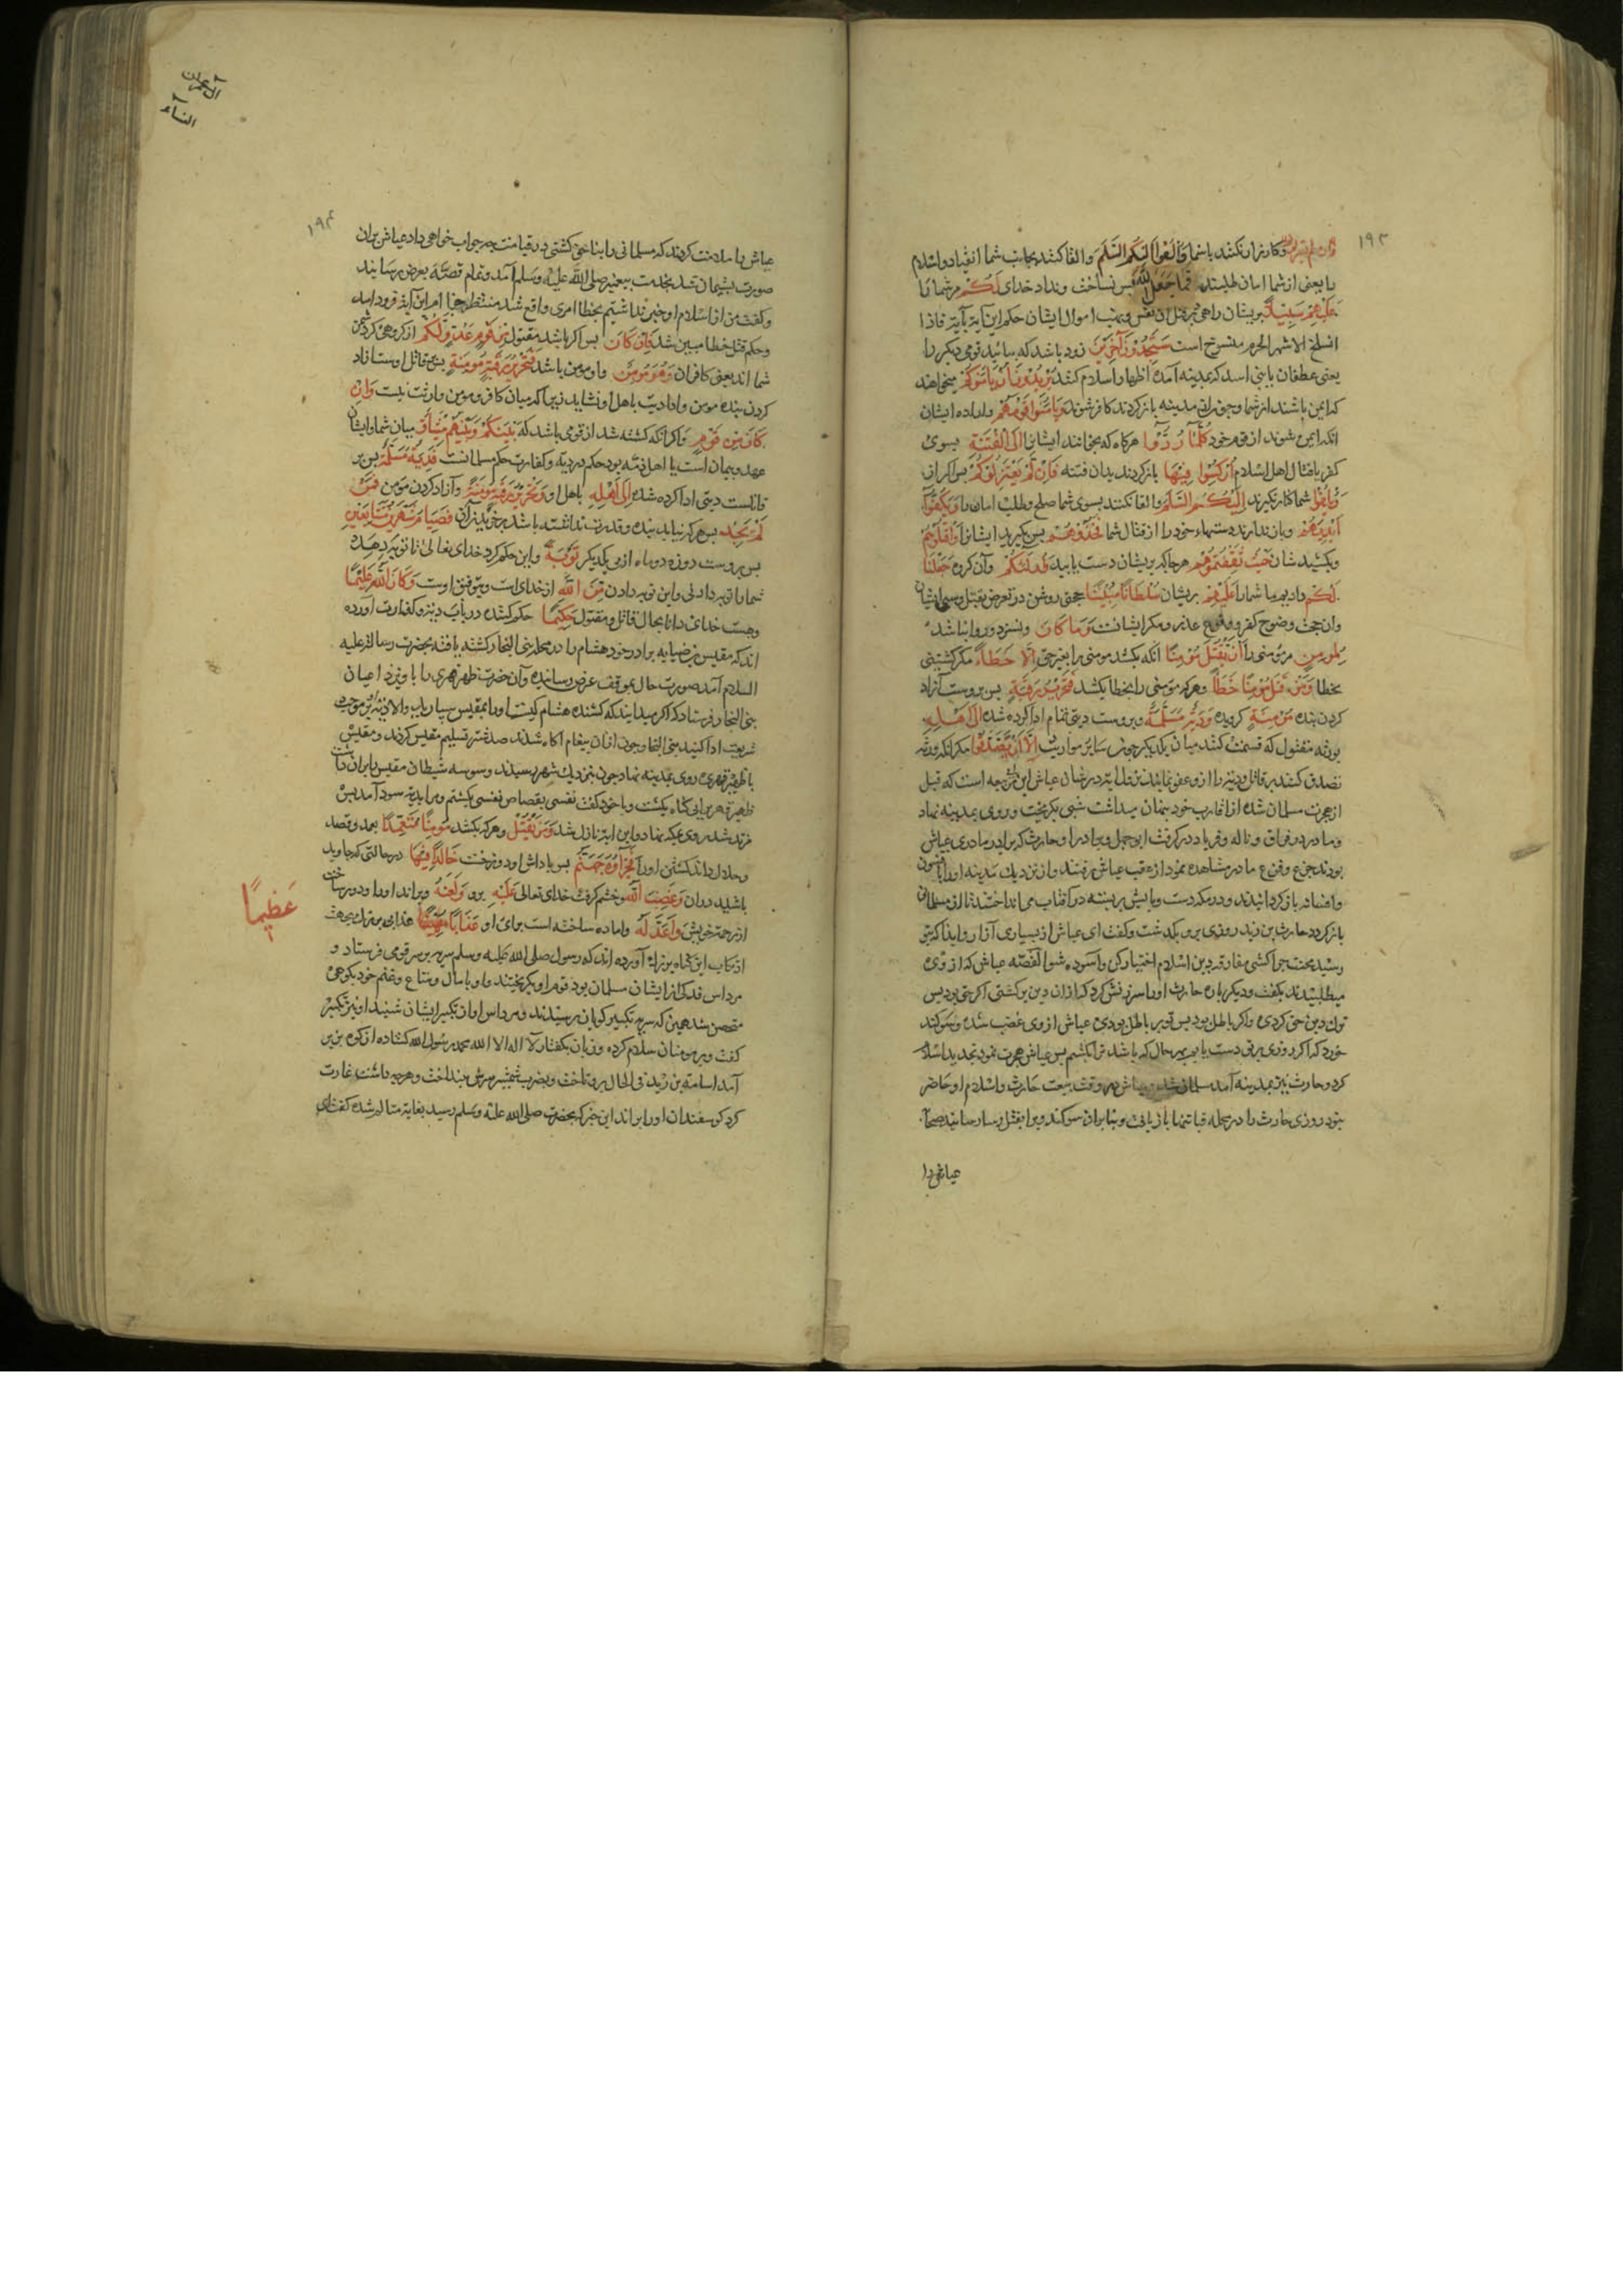 ۱۹۳
وکارزار نکنند باشما وَأَلْقَوْا إِلَيْكُمُ السَّلَمَ والقا کنند بجانب شما انقیاد واسلام
یا یعنی از شما امان طلبند فَمَا جَعَلَ اللَّهُ پس نساخت ونداد خدای لَكُمْ مر شما را
عَلَيْهِمْ سَبِيلًا بریشان راهی بقتل نفس ونهب اموال ایشان حکم این آیة بآیة فاذا
انسلخ الاشهر الحرم منسوخ است سَتَجِدُونَ آخَرِينَ زود باشد که بیابید قومی دیگر را
یعنی غطفان یا بنی اسد که بمدینه آمده اظهار اسلام کنند يُرِيدُونَ أَنْ يَأْمَنُوكُمْ میخواهند
که ایمن باشند از شما وچون از مدینه بازکردند کافر شوند وَيَأْمَنُوا قَوْمَهُمْ واراده ایشان
انکه ایمن شوند از قوم خود كُلَّمَا رُدُّوا هرکاه که بخوانند ایشانرا إِلَى الْفِتْنَةِ بسوی
کفر یا قتال اهل اسلام أُرْكِسُوا فِيهَا بازکردند بدان فتنه فَإِنْ لَمْ يَعْتَزِلُوكُمْ پس اکر از
شما کنار نکیرند وَيُلْقُوا إِلَيْكُمُ السَّلَمَ والقا نکنند بسوی شما صلح وطلب امان را وَيَكُفُّوا
أَيْدِيَهُمْ وباز ندارند دستهاء خود را از قتال شما فَخُذُوهُمْ پس بکیرید ایشانرا وَاقْتُلُوهُمْ
وبکشید شان حَيْثُ ثَقِفْتُمُوهُمْ هرجا که بریشان دست یابید وَأُولَئِكُمْ وآن کروه جَعَلْنَا
لَكُمْ دادیم ما شمارا عَلَيْهِمْ بریشان سُلْطَانًا مُبِينًا حجتی روشن در تعرض بقتل وسبی ایشان
وان حجت وضوح کفر ووقوع عذر ومکر ایشانست وَمَا كَانَ ونسزد وروا نباشد
لِمُؤْمِنٍ مر مؤمنی را أَنْ يَقْتُلَ مُؤْمِنًا انکه بکشد مومنی را بغیر حق إِلَّا خَطَأً مکر کشتنی
بخطا وَمَنْ قَتَلَ مُؤْمِنًا خَطَأً وهرکه مؤمنی را بخطا بکشد فَتَحْرِيرُ رَقَبَةٍ پس بروست آزاد
کردن بنده مُؤْمِنَةٍ کرویده وَدِيَةٌ مُسَلَّمَةٌ وبروست دیتی تمام ادا کرده شده إِلَى أَهْلِهِ
بورثه مقتول که قسمت کنند میان یکدیکر چون سایر مواریث إِلَّا أَنْ يَصَّدَّقُوا مکر انکه ورثه
تصدق کنند بر قاتل ودیة را ازو عفو نمایند نزول آیة در شان عیاش بن ربیعه است که قبل
از هجرت مسلمان شده از اقارب خود پنهان میداشت شبی بکریخت وروی بمدینه نهاد
ومادر در فراق وناله وفریاد در کرفت ابوجهل وبرادر او حارث که برادر مادری عیاش
بودند جزع وفزع مادر مشاهده نموده از عقب عیاش برفتند واز نزدیک مدینه اورا بافسون
وافسانه بازکردانیدند ودر مکه دست وپایش بربسته در آفتاب می انداختند تا از مسلمانی
بازکردد حارث بن زید روزی برو بکذشت وکفت ای عیاش از بسیاری آزار وایذا که بتو
رسید محنت چرا کشی مفارقت دین اسلام اختیار کن وآسوده شو القصه عیاش که از وی
میطلبیدند بکفت ودیکر باره حارث اورا سرزنش کرد که ازان دین برکشتی اکر حق بود پس
ترک دین حق کردی واکر باطل بود پس تو بر باطل بودی عیاش از وی غضب شده وسوکند
خورد که اکر روزی بر تو دست یابم بهر حال که باشد ترا بکشم پس عیاش هجرت نمود تجدید اسلام
کرد وحارث نیز بمدینه آمد مسلمان شد وعیاش در وقت بیعت حارث واسلام او حاضر
نبود روزی حارث را در محله قبا تنها بازیافت وبنابر ان سوکند ویرا بقتل رسانید صحابه
عیاش را
آل عمران
النسآء
۱۹۴
عیاش را ملامت کردند که مسلمانی را بناحق کشتی در قیامت چه جواب خواهی داد عیاش بران
صورت پشیمان شد بخدمت پیغمبر صلی الله علیه وسلم آمد وتمام قصه بعرض رسانید
وکفت من از اسلام او خبر نداشتم بخطا امری واقع شد منتظر این آیة فرود آمد
وحکم قتل خطا مبین شد فَإِنْ كَانَ پس اکر باشد مقتول مِنْ قَوْمٍ عَدُوٍّ لَكُمْ از کروهی که دشمن
شما اند یعنی کافران وَهُوَ مُؤْمِنٌ واو مومن باشد فَتَحْرِيرُ رَقَبَةٍ مُؤْمِنَةٍ پس بر قاتل اوست آزاد
کردن بنده مومن وادا دیت باهل او نشاید زیرا که میان کافر ومومن وارثت نیست وَإِنْ
كَانَ مِنْ قَوْمٍ واکر انکه کشته شد از قومی باشد که بَيْنَكُمْ وَبَيْنَهُمْ مِيثَاقٌ میان شما وایشان
عهد وپیمان است یا اهل ذمه بود حکم در دیه وکفارت حکم مسلمانست فَدِيَةٌ مُسَلَّمَةٌ پس بر
قاتلست دیتی ادا کرده شده إِلَى أَهْلِهِ باهل او وَتَحْرِيرُ رَقَبَةٍ مُؤْمِنَةٍ وآزاد کردن مومن فَمَنْ
لَمْ يَجِدْ پس هرکه نیابد بنده وقدرت نداشته باشد بر خریدن آن فَصِيَامُ شَهْرَيْنِ مُتَتَابِعَيْنِ
پس بروست روزه دو ماه از پی یکدیکر تَوْبَةً واین حکم کرد خدای تعالی تا توبه دهد
شما را توبه دادنی واین توبه دادن مِنَ اللَّهِ از خدای است وبتوفیق اوست وَكَانَ اللَّهُ عَلِيمًا
وهست خدای دانا بحال قاتل ومقتول حَكِيمًا حکم کننده در باب دیة وکفارت آورده
اند که مقیس بن ضبابه برادر خود هشام را در محله بنی النجار کشته یافته بحضرت رسالت علیه
السلام آمد صورت حال بموقف عرض رسانید وآن حضرت ظهر فهری را با وی نزد اعیان
بنی النجار فرستاد که اکر میدانید که کشنده هشام کیست اورا بمقیس سپارید والا دیة بموجب
شریعت ادا کنید بنی النجار چون ازان پیغام آکاه شدند صد شتر تسلیم مقیس کردند ومقیس
با ظهر فهری روی بمدینه نهاد چون بنزدیک شهر رسیدند وسوسه شیطان مقیس را بران داشت
ظهر فهری را بی کناه بکشت وبا خود کفت نفسی بقصاص نفسی بکشتم وبرا دیة سود آمد پس
مرتد شد روی بمکه نهاد واین ایة نازل شد وَمَنْ يَقْتُلْ وهرکه بکشد مُؤْمِنًا مُتَعَمِّدًا بعمد وقصد
وحلال داند کشتن اورا فَجَزَاؤُهُ جَهَنَّمُ پس پاداش او دوزخست خَالِدًا فِيهَا در حالتی که جاوید
باشید دران وَغَضِبَ اللَّهُ وخشم کرفت خدای تعالی عَلَيْهِ برو وَلَعَنَهُ وبراند اورا ودور ساخت
از رحمت خویش وَأَعَدَّ لَهُ واماده ساخته است برای او عَذَابًا عذابی بزرک بجهت
عَظِيمًا
ارتکاب این کناه بزرک آورده اند که رسول صلی الله علیه وسلم سریه بر سر قومی فرستاد و
مرداس فدکی از ایشان مسلمان بود قوم او بکریختند واو با مال ومتاع وغنم خود بکوهی
متحصن شد همین که سریه تکبیر کویان برسیدند ومرداس اواز تکبیر ایشان شنید او نیز تکبیر
کفت وبر مومنان سلام کرده وزبان بکفتار لا اله الا الله محمد رسول الله کشاده از کوه بزیر
آمد اسامة بن زید فی الحال برو تاخت وبضرب شمشیر سرش بینداخت وهرچه داشت غارت
کرد کوسفندان اورا براند این خبر که بحضرت صلی الله علیه وسلم رسید بغایة متالم شده کفت ای